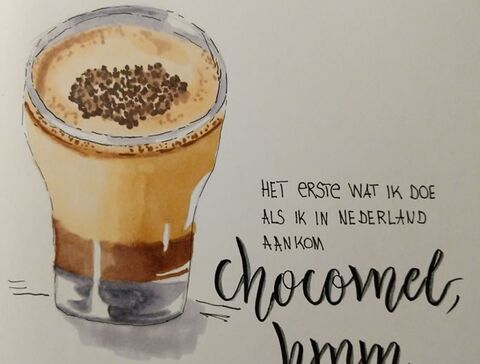 HET ERSTE WAT IK DOE
ALS IK IN NEDERLAND
AANKOM
chocomel,
hmm.